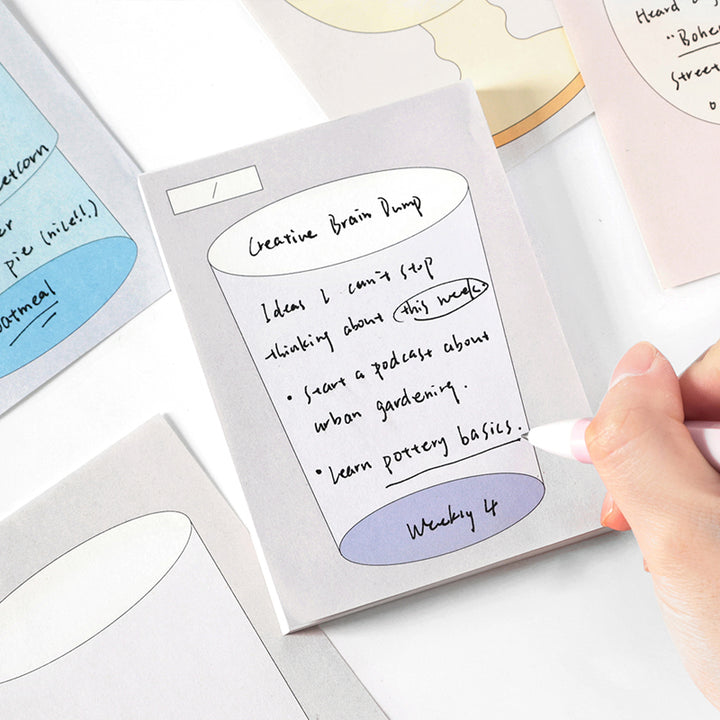 /
Creative Brain Dump
Ideas I can't stop
thinking about (this week.
• Start a podcast about
urban gardening.
• Learn pottery basics.
Weekly 4
pie (nice!!)
oatmeal
Heard
"Bohe
street